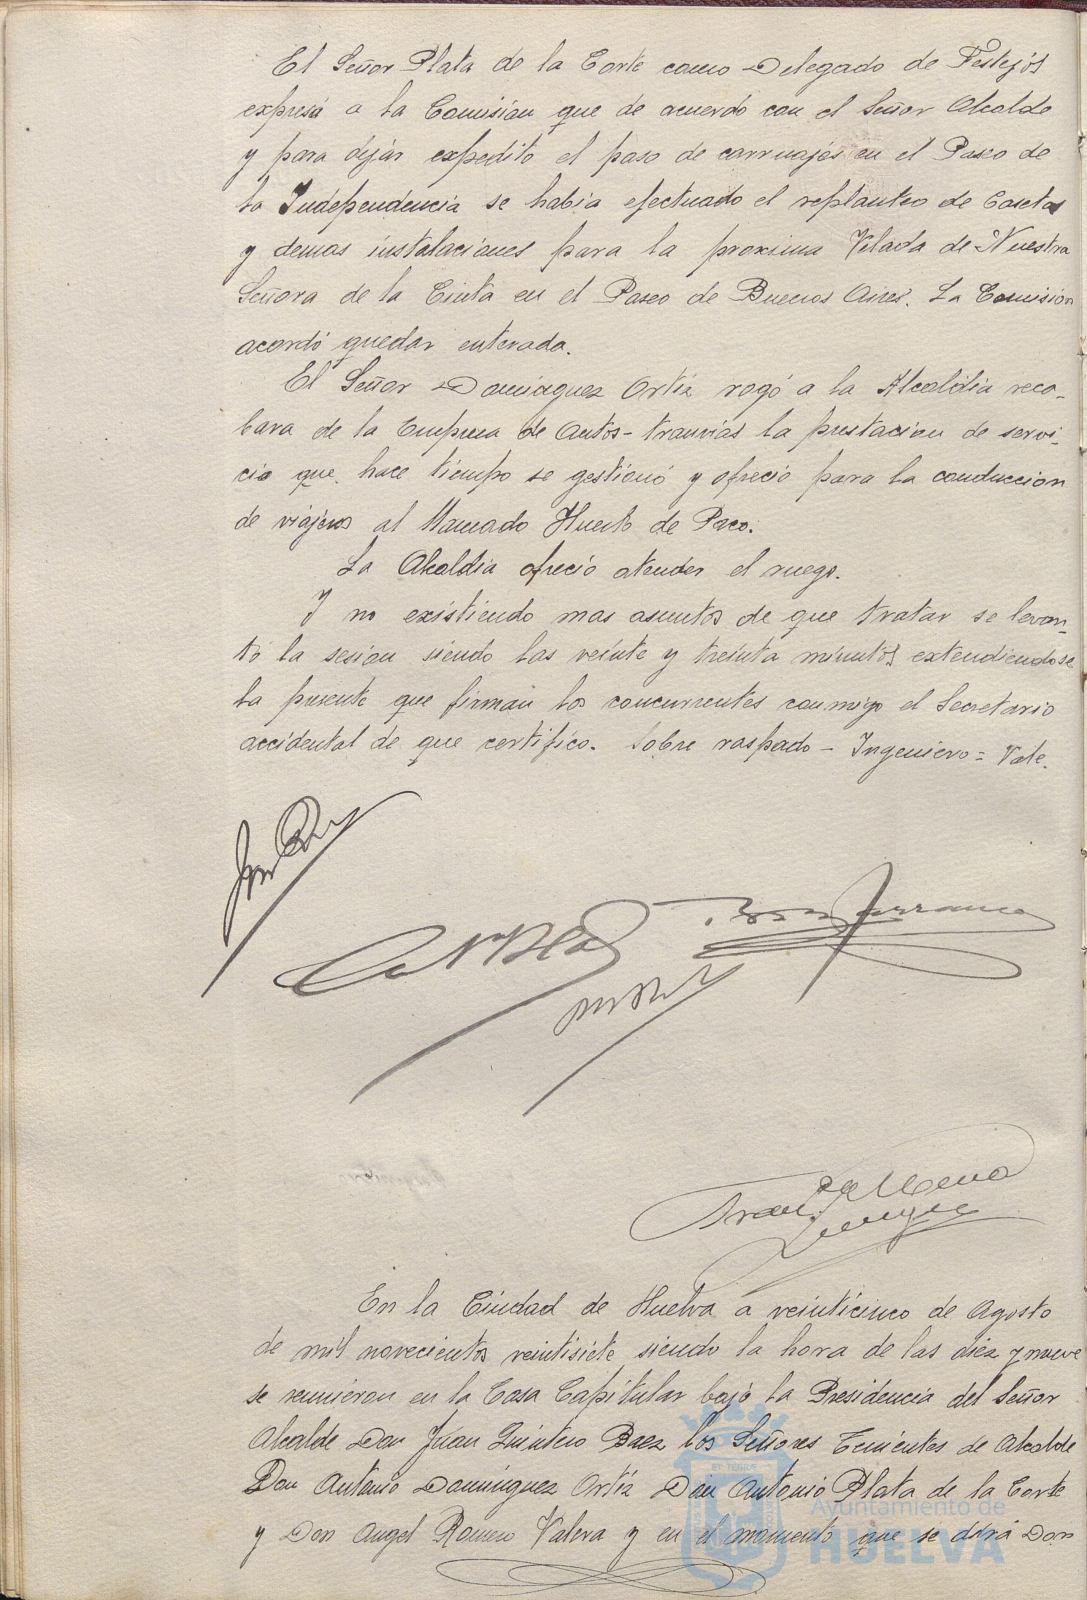 El Señor Plata de la Corte como Delegado de Festejos
expresó a la Comisión que de acuerdo con el Señor Alcalde
y para dejar expedito el paso de carruajes en el Paseo de
la Independencia se habia efectuado el replanteo de Casetas
y demas instalaciones para la proxima Velada de Nuestra
Señora de la Cinta en el Paseo de Buenos Aires. La Comisión
acordó quedar enterada.
El Señor Dominguez Ortiz rogó a la Alcaldia reca-
bara de la Empresa de Autos-tranvias la prestacion de servi-
cio que hace tiempo se gestionó y ofreció para la conduccion
de viajeros al Mercado Huerto de Paco.
La Alcaldia ofreció atender el ruego.
Y no existiendo mas asuntos de que tratar se levan-
tó la sesion siendo las veinte y treinta minutos extendiendose
la presente que firman los concurrentes conmigo el Secretario
accidental de que certifico. Sobre raspado - Ingeniero = Vale.
En la Ciudad de Huelva a veinticinco de Agosto
de mil novecientos veintisiete siendo la hora de las diez y nueve
se reunieron en la Casa Capitular bajo la Presidencia del Señor
Alcalde Don Juan Quintero Baez los Señores Tenientes de Alcalde
Don Antonio Dominguez Ortiz Don Antonio Plata de la Corte
y Don Angel Romero Valera y en el momento que se dirá Don
Ayuntamiento de
HUELVA